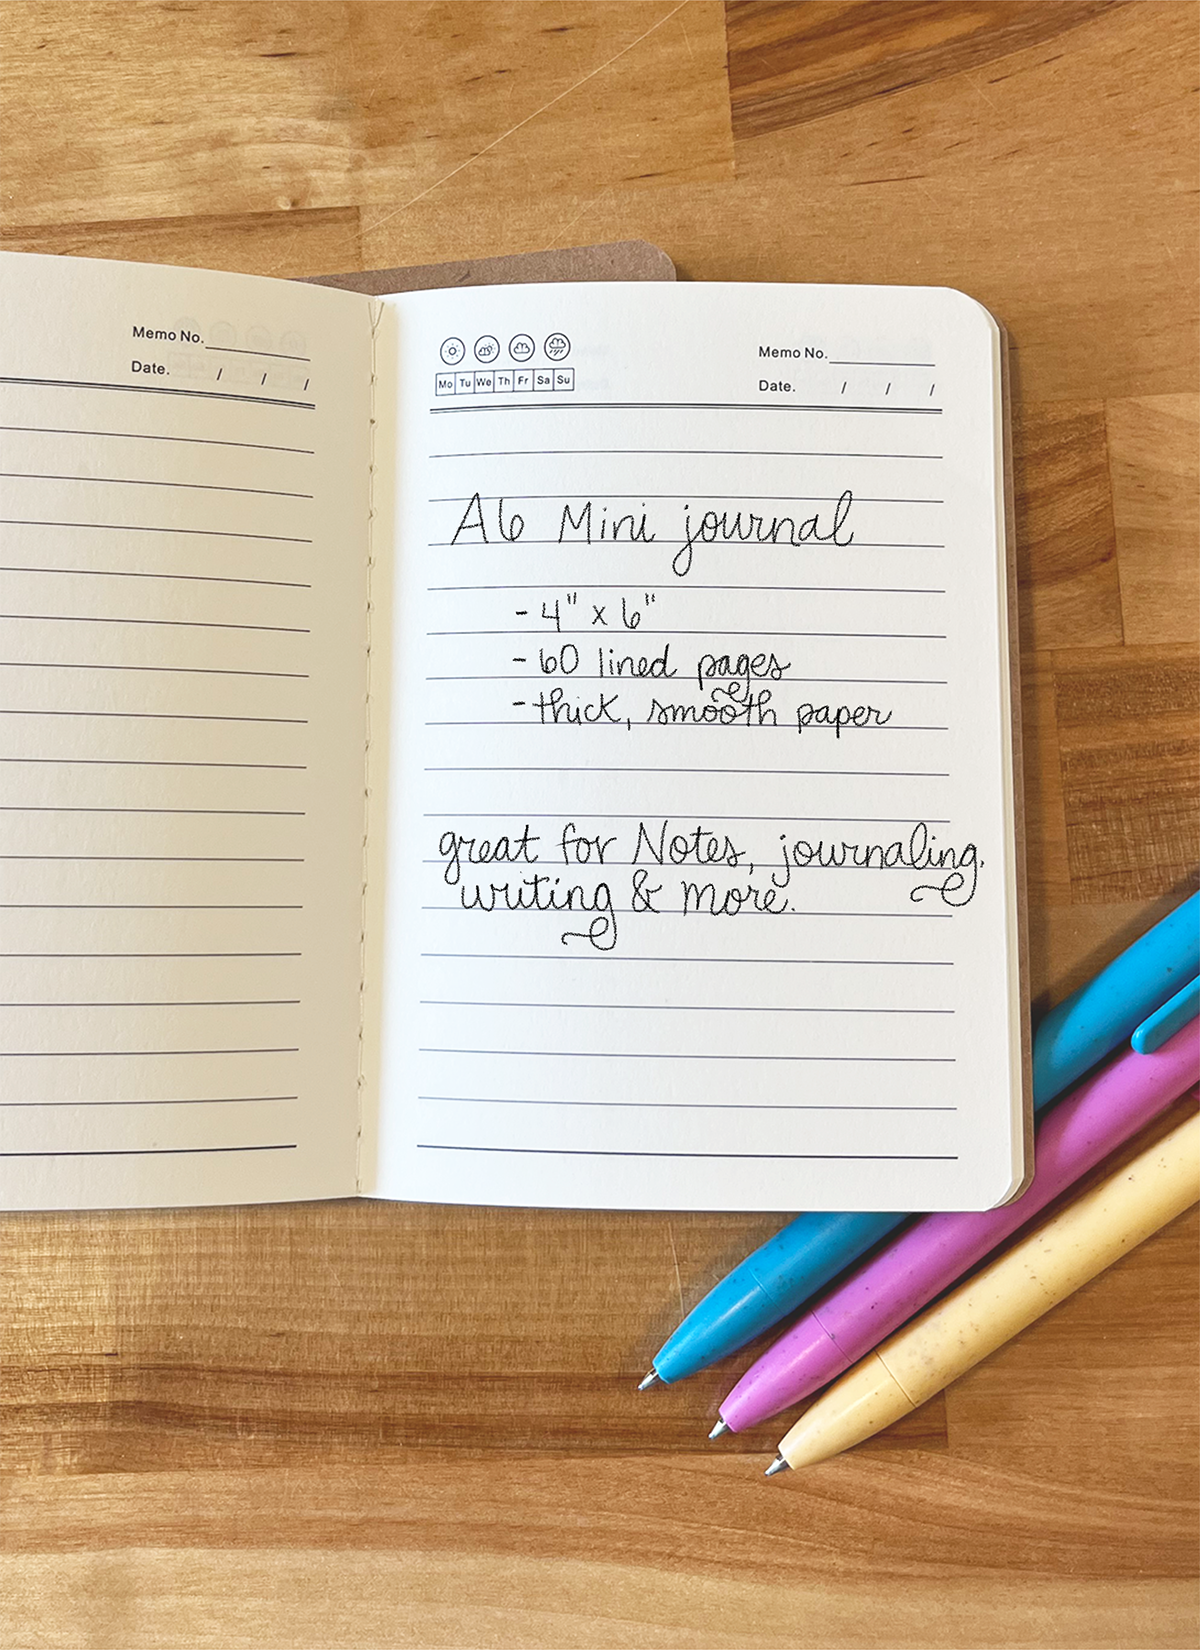 Memo No.
Date. / / /
Mo Tu We Th Fr Sa Su
Memo No.
Date. / / /
A6 Mini journal
- 4" x 6"
- 60 lined pages
- thick, smooth paper
great for Notes, journaling,
writing & more.